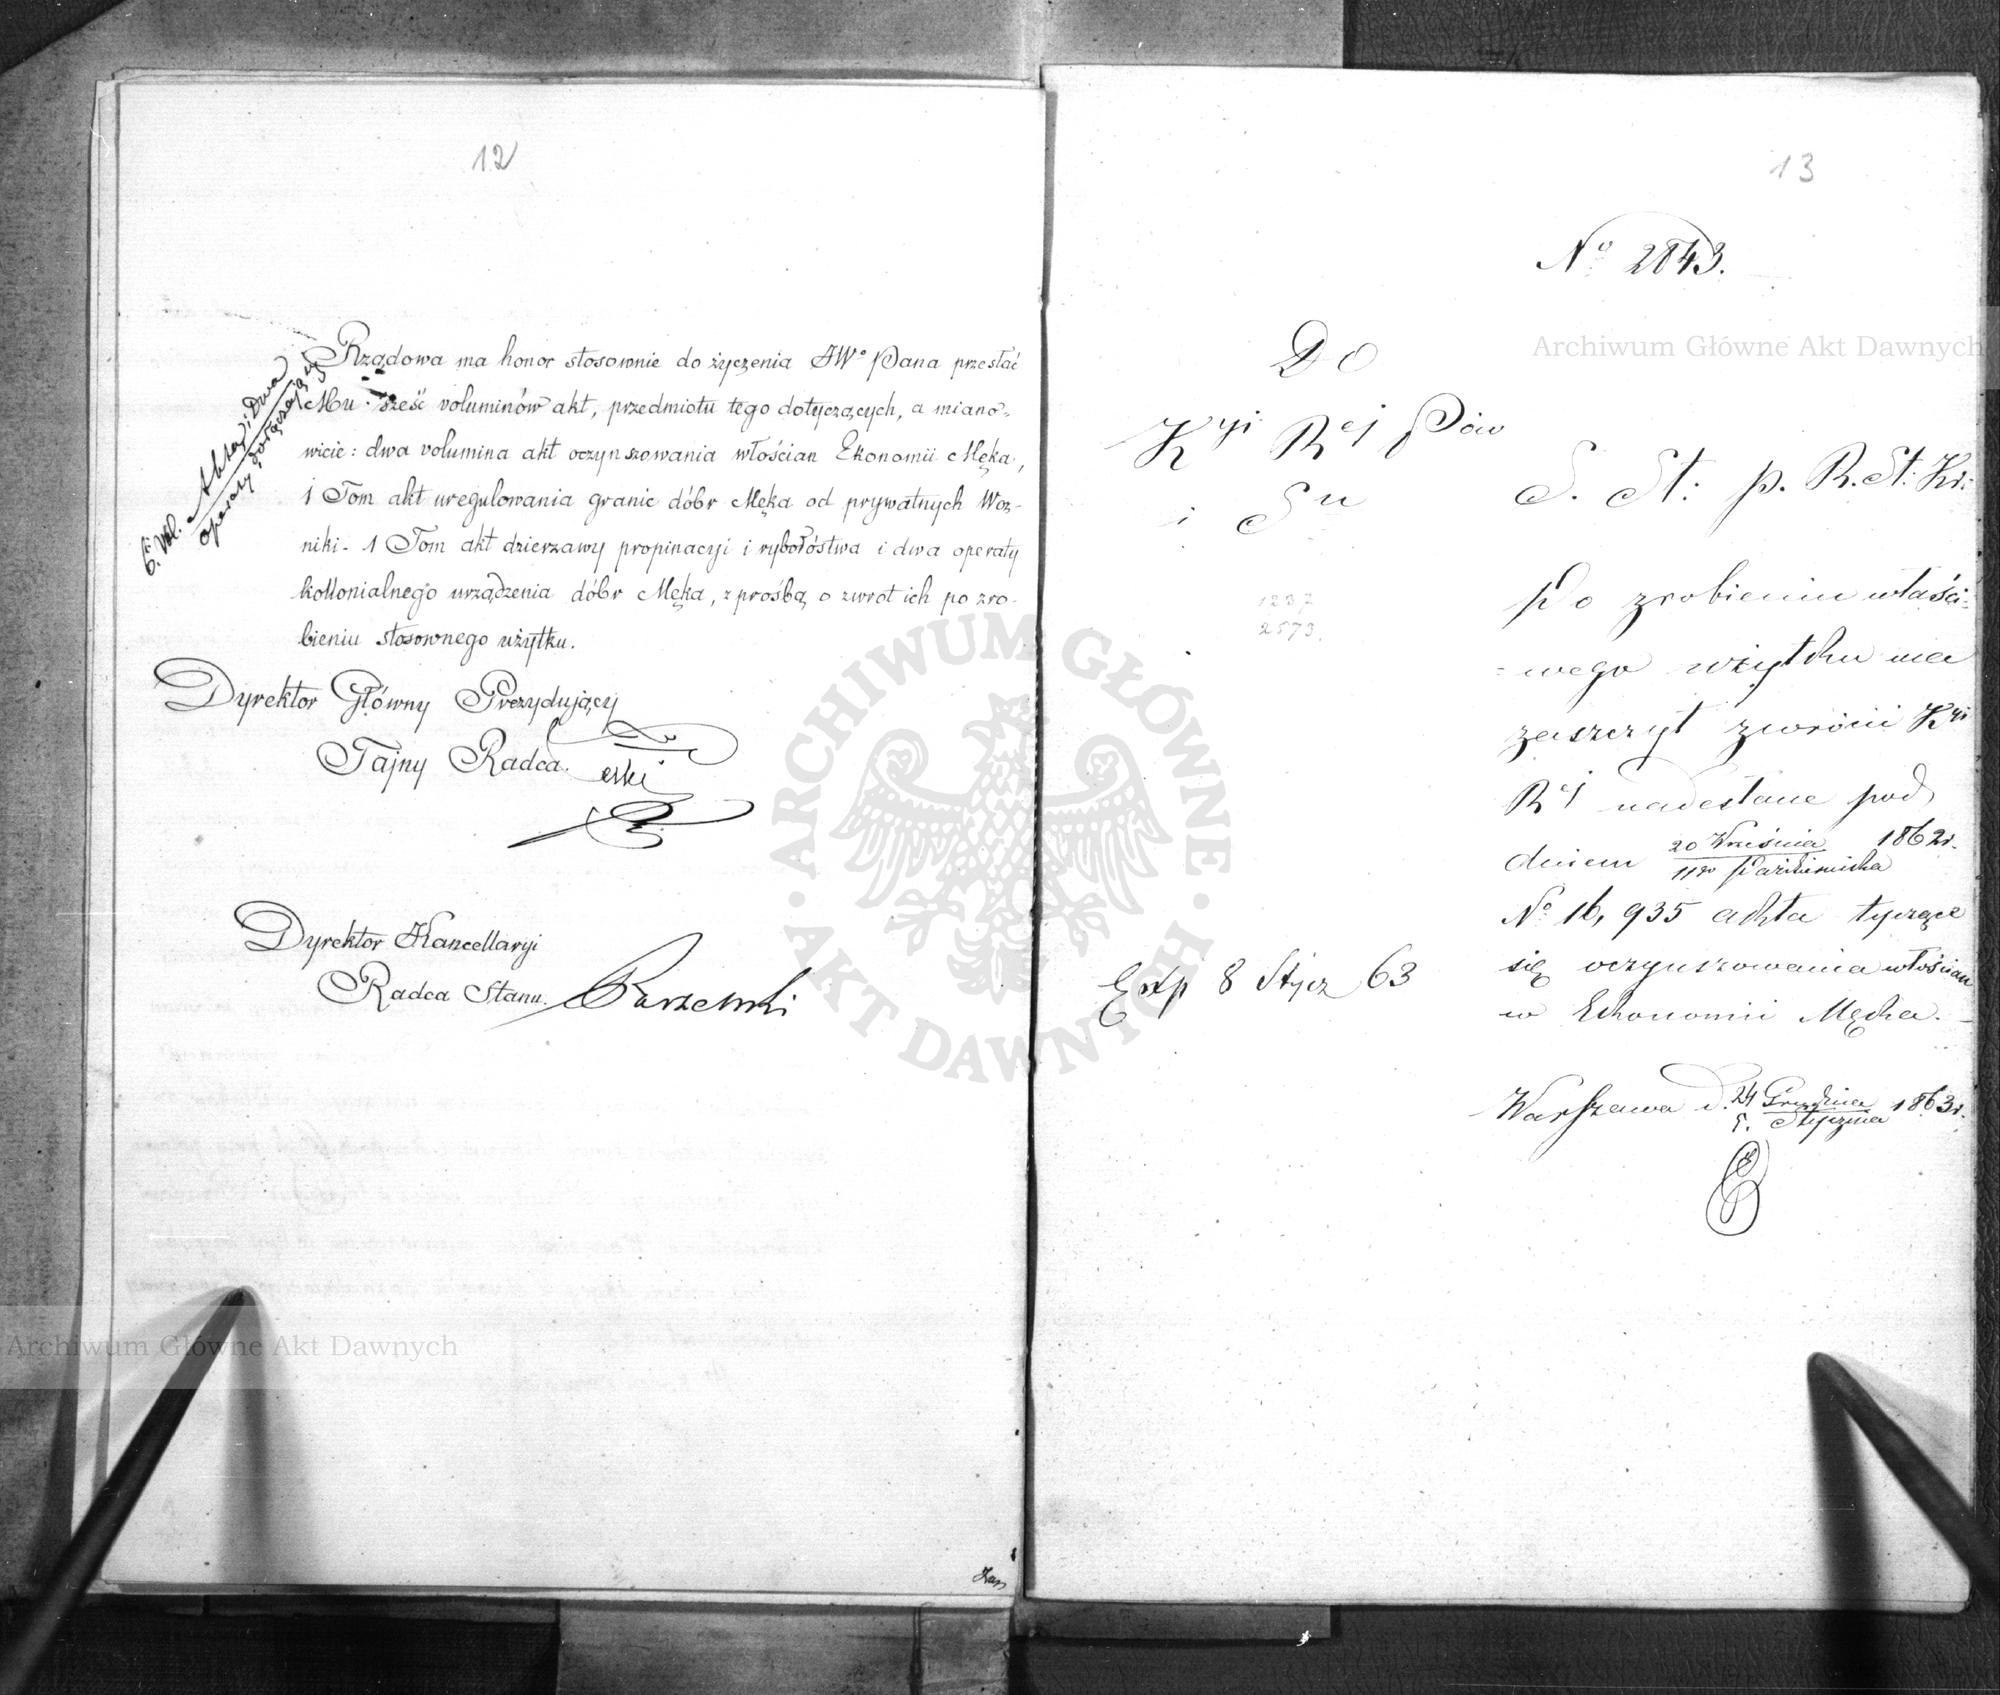 12
6. Vol. Akta, i Dwa
operaty dołączają się
Rządowa ma honor stosownie do życzenia JWo Pana przesłać
Mu sześć voluminów akt, przedmiotu tego dotyczących, a miano-
wicie: dwa volumina akt oczynszowania włościan Ekonomii Męka,
1 Tom akt uregulowania granic dóbr Męka od prywatnych Woz-
niki - 1 Tom akt dzierzawy propinacyi i rybołóstwa i dwa operaty
kollonialnego urządzenia dóbr Męka, z prośbą o zwrot ich po zro-
bieniu stosownego użytku.
Dyrektor Główny Prezydujący
Tajny Radca
Dyrektor Kancellaryi
Radca Stanu.
13
No 2843.
Do
Kyi Rej Pów
i Su
S. St: p. R. St: Kr:
1237
2573.
Po zrobieniu właści-
-wego użytku ma
zaszczyt zwrócić Kyi
Rej nadesłane pod
dniem 20 Września / 11go Października 1862 r.
No 16,935 akta tyczące
się oczynszowania włościan
w Ekonomii Męka. -
Exp 8 Stycz 63
Warszawa d. 24 Grudnia / 5. Stycznia 1863 r.
Archiwum Główne Akt Dawnych
Archiwum Główne Akt Dawnych
ARCHIWUM GŁÓWNE
AKT DAWNYCH